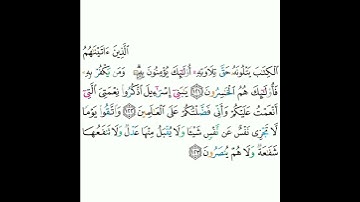 الَّذِينَ ءَاتَيْنَٰهُمُ
الْكِتَٰبَ يَتْلُونَهُۥ حَقَّ تِلَاوَتِهِۦٓ أُو۟لَٰٓئِكَ يُؤْمِنُونَ بِهِۦ ۗ وَمَن يَكْفُرْ بِهِۦ
فَأُو۟لَٰٓئِكَ هُمُ الْخَٰسِرُونَ ١٢١ يَٰبَنِىٓ إِسْرَٰٓءِيلَ اذْكُرُوا۟ نِعْمَتِىَ الَّتِىٓ
أَنْعَمْتُ عَلَيْكُمْ وَأَنِّى فَضَّلْتُكُمْ عَلَى الْعَٰلَمِينَ ١٢٢ وَاتَّقُوا۟ يَوْمًا
لَّا تَجْزِى نَفْسٌ عَن نَّفْسٍ شَيْـًٔا وَلَا يُقْبَلُ مِنْهَا عَدْلٌ وَلَا تَنفَعُهَا
شَفَٰعَةٌ وَلَا هُمْ يُنصَرُونَ ١٢٣